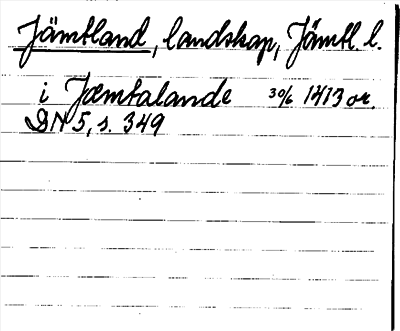 Jämtland, landskap, Jämtl. l.
i Jæmtalande 30/6 1413 or.
DN 5, s. 349